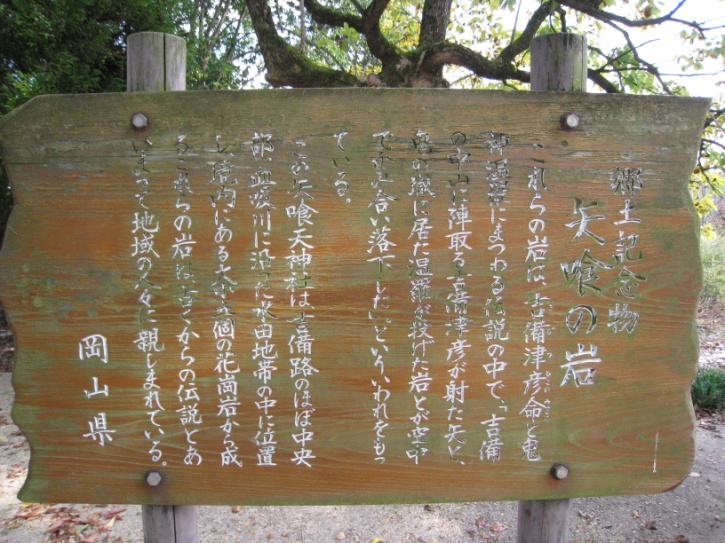 郷土記念物
矢喰の岩
これらの岩は、吉備津彦命と鬼
神温羅にまつわる伝説の中で、「吉備
の中山に陣取る吉備津彦が射た矢と、
鬼の城に居た温羅が投げた岩とが空中
で喰い合い落下した」といういわれをもっ
ている。
この矢喰天神社は吉備路のほぼ中央
部、血吸川に沿った水田地帯の中に位置
し境内にある大小五個の花崗岩から成
るこれらの岩は、古くからの伝説とあ
いまって地域の人々に親しまれている。
岡山県